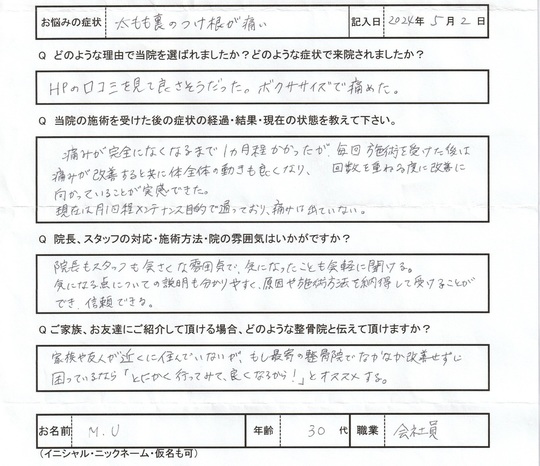 お悩みの症状 太もも裏のつけ根が痛い 記入日 2024年 5月 2日
Q どのような理由で当院を選ばれましたか？どのような症状で来院されましたか？
HPの口コミを見て良さそうだった。ボクササイズで痛めた。
Q 当院の施術を受けた後の症状の経過・結果・現在の状態を教えて下さい。
痛みが完全になくなるまで1ヵ月程かかったが、毎回施術を受けた後は
痛みが改善すると共に体全体の動きも良くなり、 回数を重ねる度に改善に
向かっていることが実感できた。
現在は月1回程メンテナンス目的で通っており、痛みは出ていない。
Q 院長、スタッフの対応・施術方法・院の雰囲気はいかがですか？
院長もスタッフも気さくな雰囲気で、気になったことも気軽に聞ける。
気になる点についての説明も分かりやすく、原因や施術方法を納得して受けることが
でき、信頼できる。
Q ご家族、お友達にご紹介して頂ける場合、どのような整骨院と伝えて頂けますか？
家族や友人が近くに住んでいないが、もし最寄の整骨院でなかなか改善せずに
困っているなら「とにかく行ってみて、良くなるから！」とオススメする。
お名前 M.U 年齢 30 代 職業 会社員
（イニシャル・ニックネーム・仮名も可）